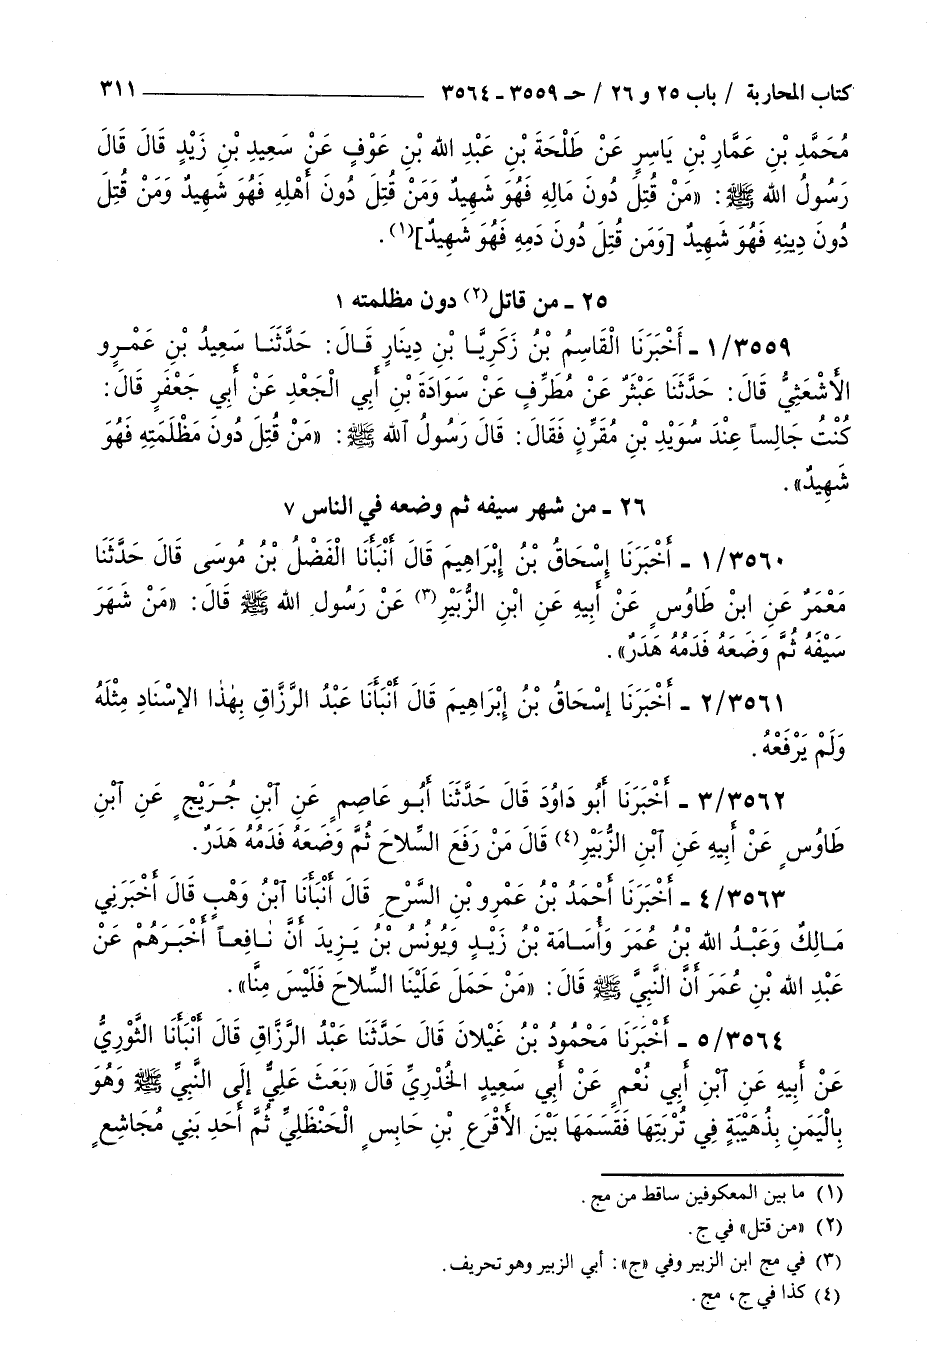 كتاب المحاربة / باب ٢٥ و ٢٦ / حـ ٣٥٥٩ ـ ٣٥٦٤ ٣١١
مُحَمَّدِ بْنِ عَمَّارِ بْنِ يَاسِرٍ عَنْ طَلْحَةَ بْنِ عَبْدِ الله بْنِ عَوْفٍ عَنْ سَعِيدِ بْنِ زَيْدٍ قَالَ قَالَ
رَسُولُ الله ﷺ: «مَنْ قُتِلَ دُونَ مَالِهِ فَهُوَ شَهِيدٌ وَمَنْ قُتِلَ دُونَ أَهْلِهِ فَهُوَ شَهِيدٌ وَمَنْ قُتِلَ
دُونَ دِينِهِ فَهُوَ شَهِيدٌ [وَمَن قُتِلَ دُونَ دَمِهِ فَهُوَ شَهِيدٌ](١).
٢٥ ـ من قاتل(٢) دون مظلمته ١
٣٥٥٩/١ ـ أَخْبَرَنَا الْقَاسِمُ بْنُ زَكَرِيَّا بْنِ دِينَارٍ قَالَ: حَدَّثَنَا سَعِيدُ بْنِ عَمْرٍو
الأَشْعَثِيُّ قَالَ: حَدَّثَنَا عَبْثَرٌ عَنْ مُطَرِّفٍ عَنْ سَوَادَةَ بْنِ أَبِي الْجَعْدِ عَنْ أَبِي جَعْفَرٍ قَالَ:
كُنْتُ جَالِساً عِنْدَ سُوَيْدِ بْنِ مُقَرِّنٍ فَقَالَ: قَالَ رَسُولُ ٱلله ﷺ: «مَنْ قُتِلَ دُونَ مَظْلَمَتِهِ فَهُوَ
شَهِيدٌ».
٢٦ ـ من شهر سيفه ثم وضعه في الناس ٧
٣٥٦٠/١ ـ أَخْبَرَنَا إِسْحَاقُ بْنُ إِبْرَاهِيمَ قَالَ أَنْبَأَنَا الْفَضْلُ بْنُ مُوسَى قَالَ حَدَّثَنَا
مَعْمَرٌ عَنِ ابنْ طَاوُسٍ عَنْ أَبِيهِ عَنِ ابْنِ الزُّبَيْرِ(٣) عَنْ رَسُولِ الله ﷺ قَالَ: «مَنْ شَهَرَ
سَيْفَهُ ثُمَّ وَضَعَهُ فَدَمُهُ هَدَرٌ».
٣٥٦١/٢ ـ أَخْبَرَنَا إسْحَاقُ بْنُ إِبْرَاهِيمَ قَالَ أَنْبَأَنَا عَبْدُ الرَّزَّاقِ بِهٰذَا الإسْنَادِ مِثْلَهُ
وَلَمْ يَرْفَعْهُ.
٣٥٦٢/٣ ـ أَخْبَرَنَا أَبُو دَاوُدَ قَالَ حَدَّثَنَا أَبُو عَاصِمٍ عَنِ ٱبْنِ جُرَيْجٍ عَنِ ٱبْنِ
طَاوُسٍ عَنْ أَبِيهِ عَنِ ٱبْنِ الزُّبَيْرِ(٤) قَالَ مَنْ رَفَعَ السِّلاحَ ثُمَّ وَضَعَهُ فَدَمُهُ هَدَرٌ.
٣٥٦٣/٤ ـ أَخْبَرَنَا أَحْمَدُ بْنُ عَمْرِو بْنِ السَّرْحِ قَالَ أَنْبَأَنَا ٱبْنُ وَهْبٍ قَالَ أَخْبَرَنِي
مَالِكٌ وَعَبْدُ الله بْنُ عُمَرَ وَأُسَامَةُ بْنُ زَيْدٍ وَيُونُسُ بْنُ يَزِيدَ أَنَّ نَافِعاً أَخْبَرَهُمْ عَنْ
عَبْدِ الله بْنِ عُمَرَ أَنَّ النَّبِيَّ ﷺ قَالَ: «مَنْ حَمَلَ عَلَيْنَا السِّلاحَ فَلَيْسَ مِنَّا».
٣٥٦٤/٥ ـ أَخْبَرَنَا مَحْمُودُ بْنُ غَيْلانَ قَالَ حَدَّثَنَا عَبْدُ الرَّزَّاقِ قَالَ أَنْبَأَنَا الثَّوْرِيُّ
عَنْ أَبِيهِ عَنِ ٱبْنِ أَبِي نُعْمٍ عَنْ أَبِي سَعِيدٍ الخُدْرِيِّ قَالَ «بَعَثَ عَلِيٌّ إلَى النَّبِيِّ ﷺ وَهُوَ
بِالْيَمَنِ بِذُهَيْبَةٍ فِي تُرْبَتِهَا فَقَسَمَهَا بَيْنَ الأَقْرَعِ بْنِ حَابِسٍ الْحَنْظَلِيِّ ثُمَّ أَحَدِ بَنِي مُجَاشِعٍ
(١) ما بين المعكوفين ساقط من مج.
(٢) «من قتل» في ج.
(٣) في مج ابن الزبير وفي «ج»: أبي الزبير وهو تحريف.
(٤) كذا في ج، مج.